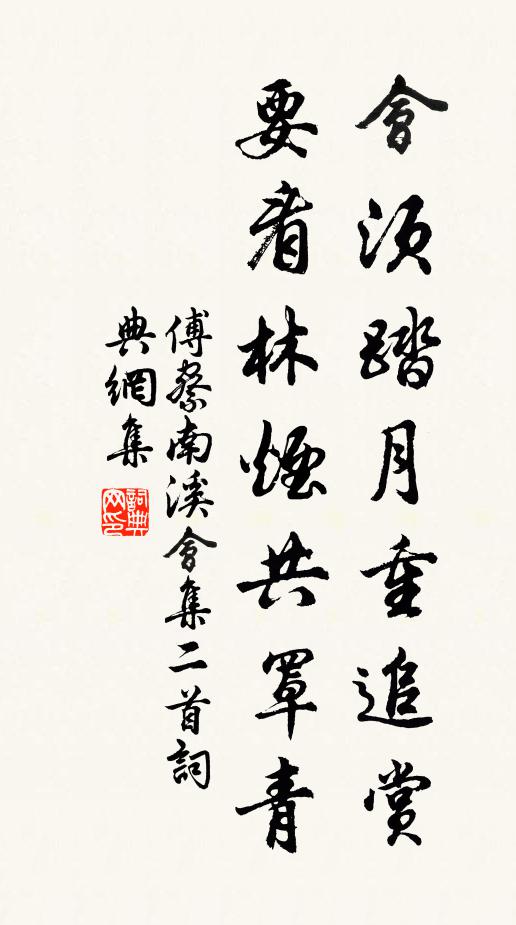 會須踏月重追賞
要看林煙共罩青
傅察南溪會集二首詞
典網集
詞典网印